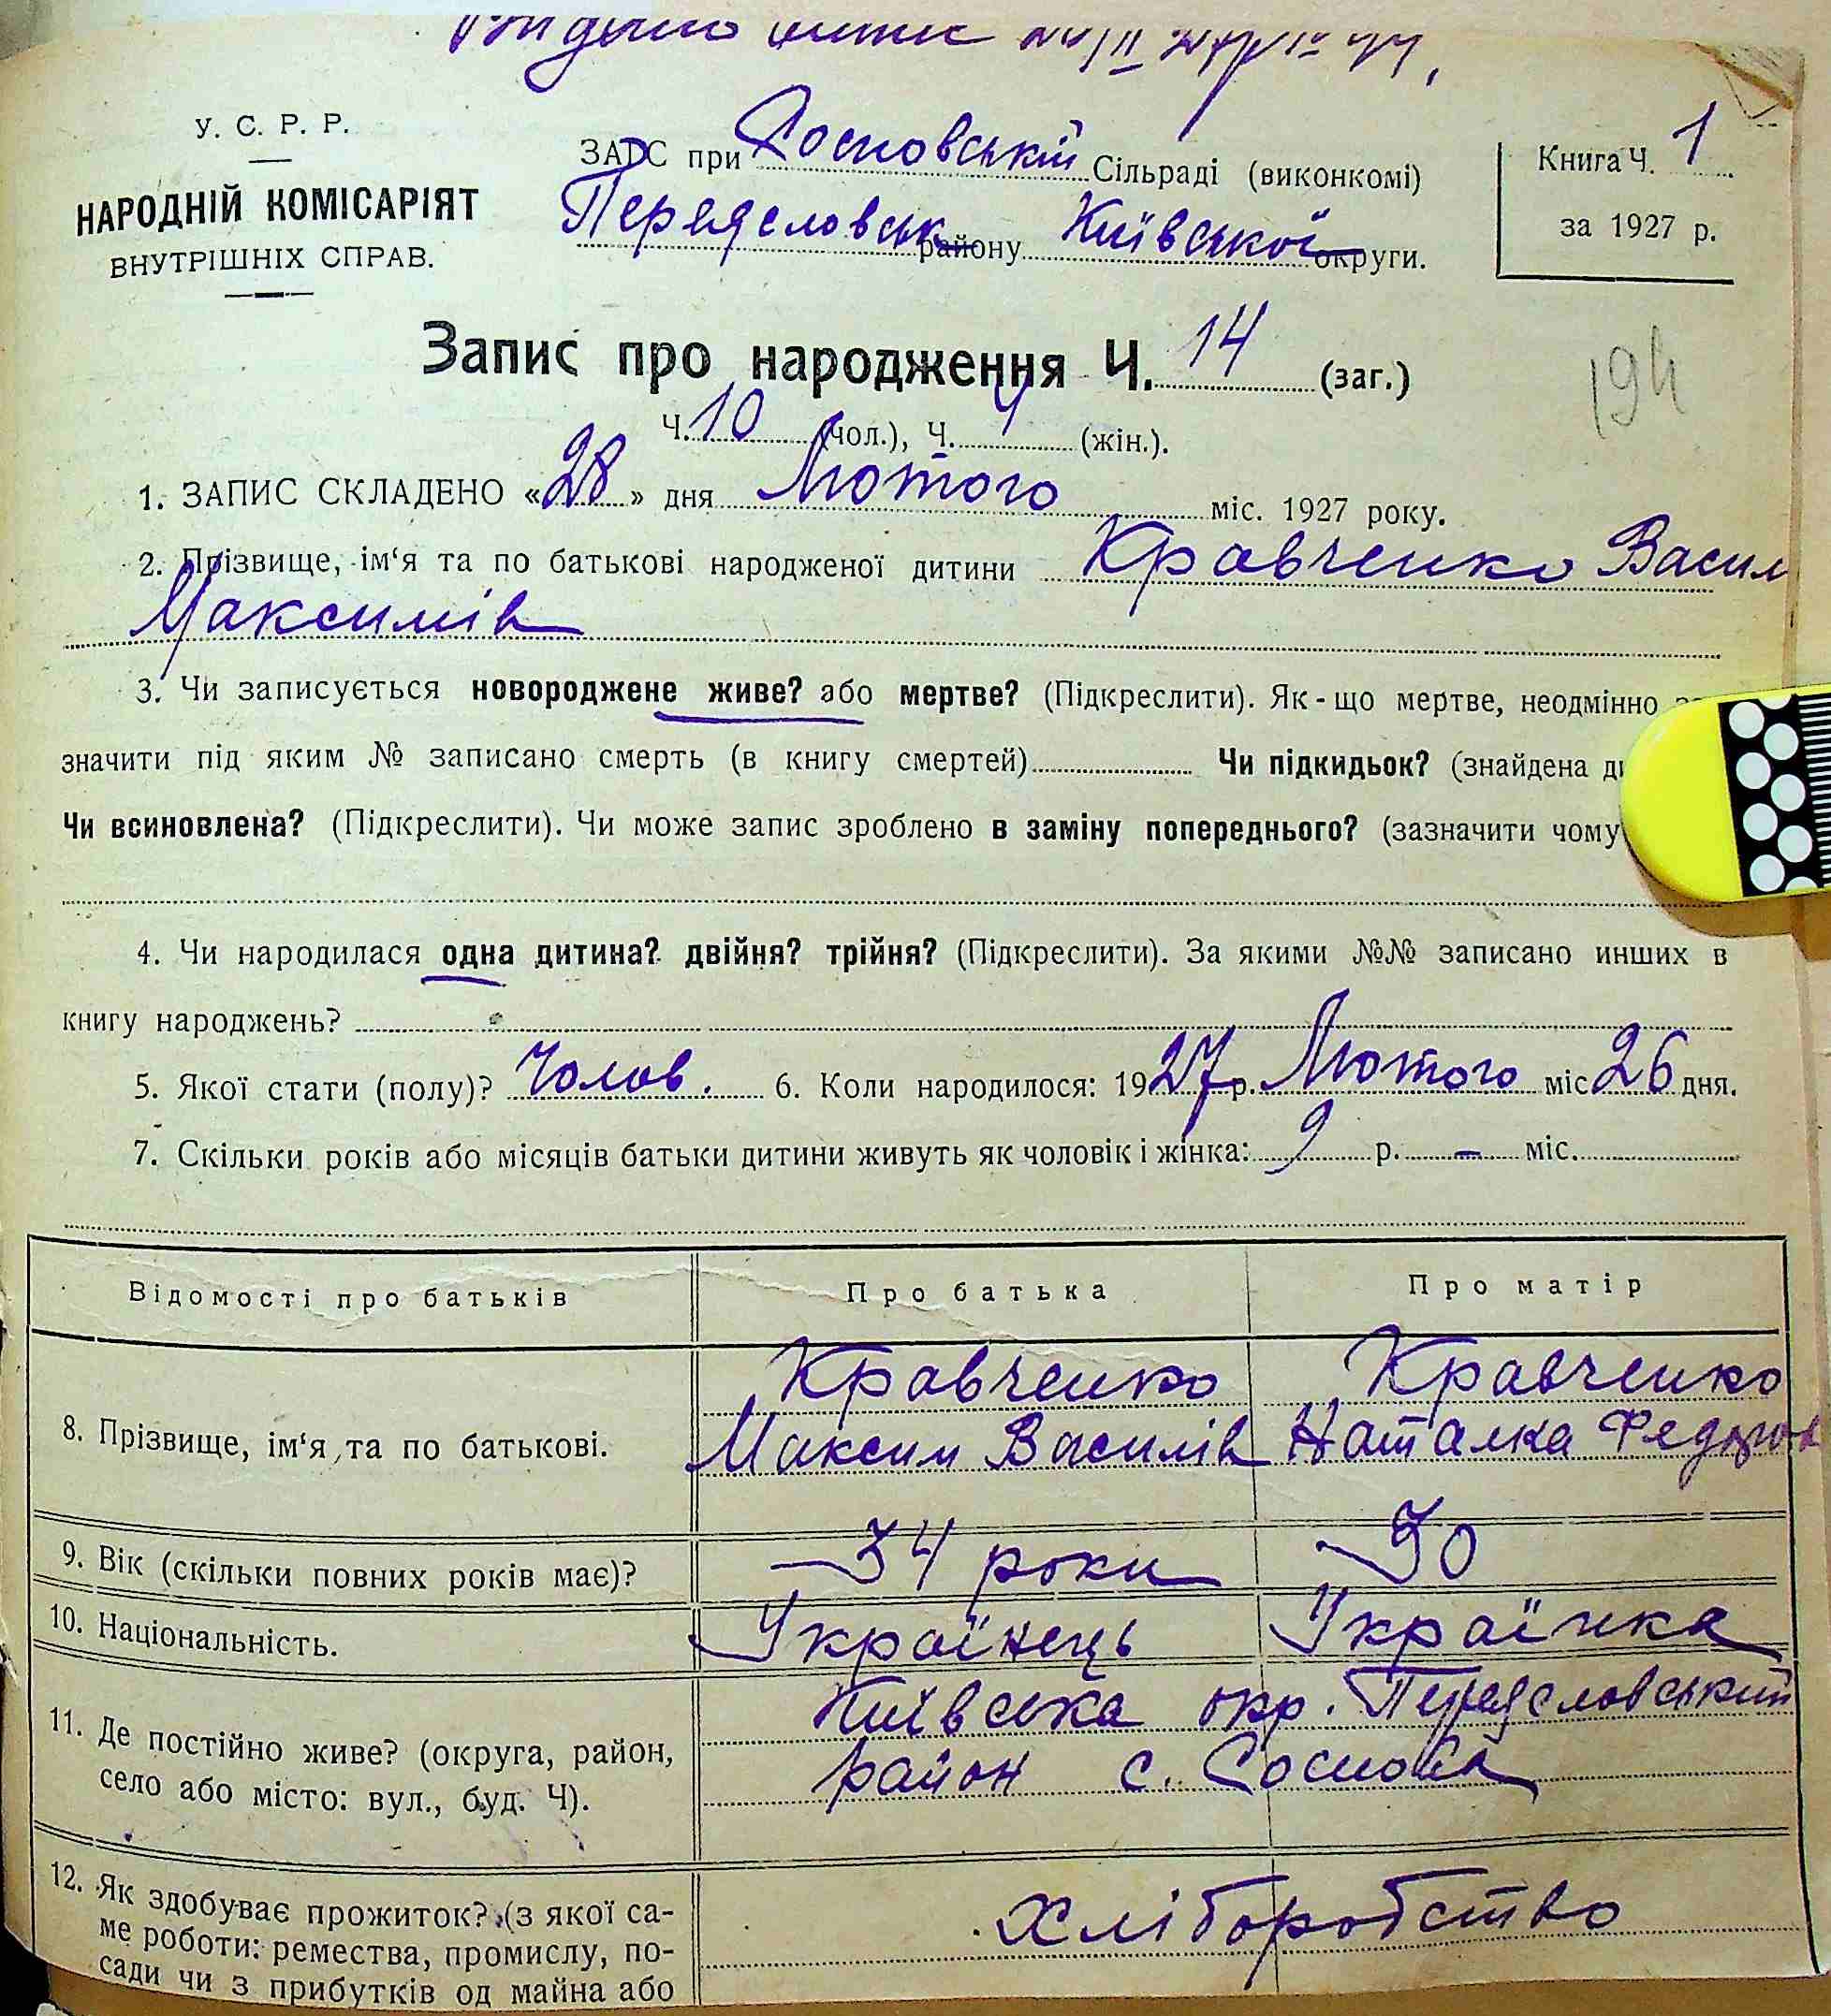 Видано витяг
У. С. Р. Р.
НАРОДНІЙ КОМІСАРІЯТ
ВНУТРІШНІХ СПРАВ.
ЗАГС при Сосновській Сільраді (виконкомі)
Переяславськ району Київської округи.
Книга Ч. 1
за 1927 р.
Запис про народження Ч. 14 (заг.)
194
Ч. 10 (чол.), Ч. 4 (жін.).
1. ЗАПИС СКЛАДЕНО «28» дня Лютого міс. 1927 року.
2. Прізвище, ім‘я та по батькові народженої дитини Кравченко Васил
Максимів
3. Чи записується новороджене живе? або мертве? (Підкреслити). Як-що мертве, неодмінно
значити під яким № записано смерть (в книгу смертей) Чи підкидьок? (знайдена
Чи всиновлена? (Підкреслити). Чи може запис зроблено в заміну попереднього? (зазначити чому
4. Чи народилася одна дитина? двійня? трійня? (Підкреслити). За якими №№ записано инших в
книгу народжень?
5. Якої стати (полу)? Чолов. 6. Коли народилося: 1927 р. Лютого міс 26 дня.
7. Скільки років або місяців батьки дитини живуть як чоловік і жінка: 9 р. – міс.
Відомості про батьків Про батька Про матір
Кравченко Кравченко
8. Прізвище, ім‘я та по батькові. Максим Василів Наталка Федоров
9. Вік (скільки повних років має)? 34 роки 30
10. Національність. Українець Українка
11. Де постійно живе? (округа, район, Київська окр. Переяславський
село або місто: вул., буд. Ч). район с. Соснова
12. Як здобуває прожиток? (з якої са-
ме роботи: ремества, промислу, по- хліборобство
сади чи з прибутків од майна або